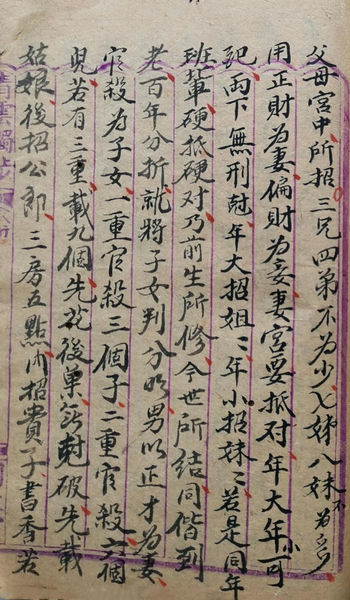 父母宫中所招三兄四弟不为少七姊八妹不为多
用正财為妻偏財為妾妻宮要抵对年大年小可
記兩下無刑尅年大招姐〻年小招妹〻若是同年
班輩硬抵硬对乃前生所修今世所结同偕到
老百年分折就將子女判分明男以正才為妻
官殺為子女一重官殺三個子二重官殺六個
兒若有三重載九個先花後菓能尅破先載
姑娘後招公郎三房五點內招貴子書香若